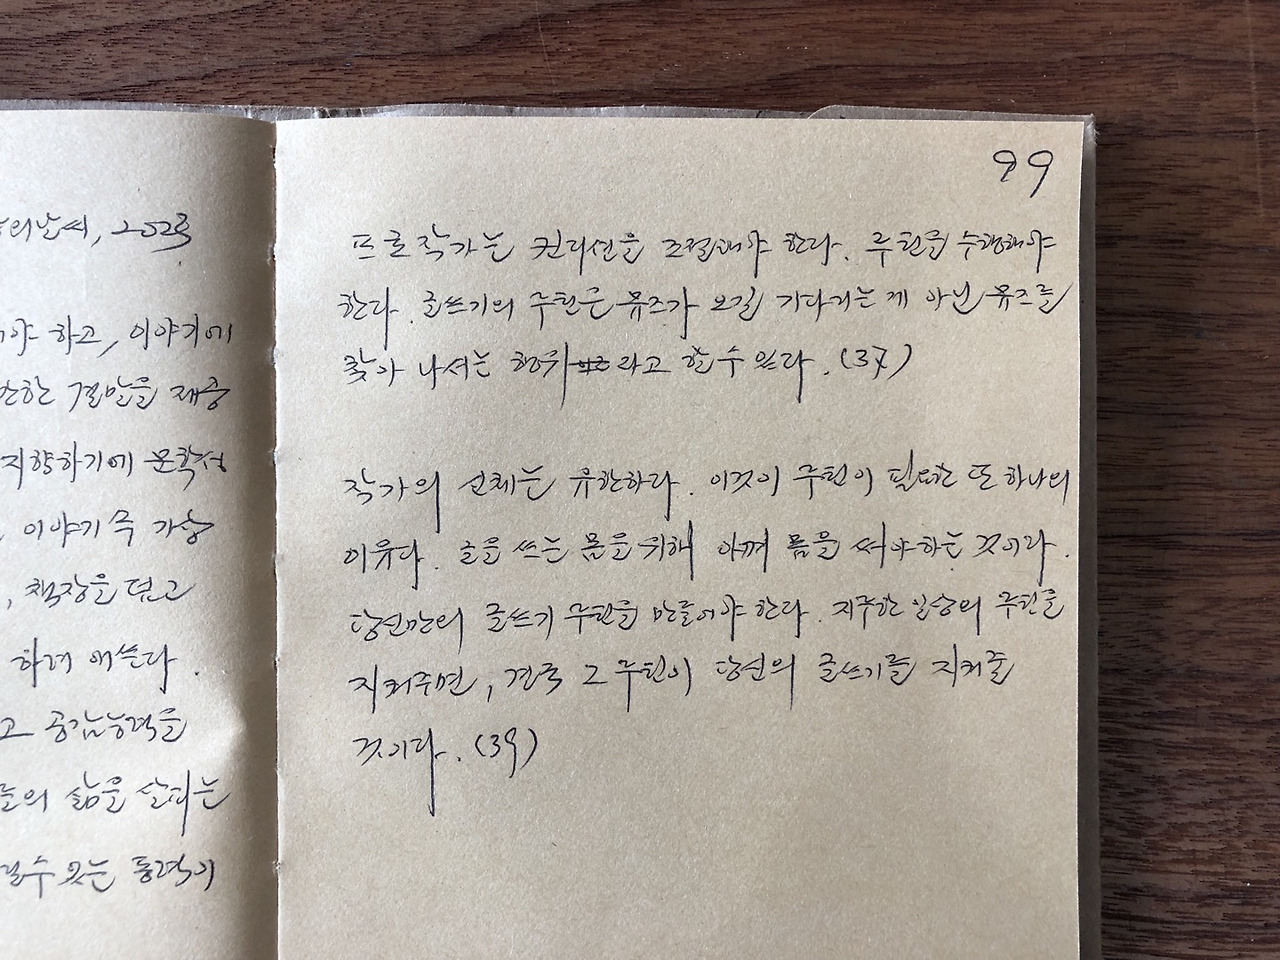 의 날씨, 2023
야 하고, 이야기에
한 결말을 제공
지향하기에 문학적
이야기 즉 가상
, 책장을 덮고
하려 애쓴다.
고 공감능력을
들의 삶을 살피는
수 있는 동력이
99
프로 작가는 컨디션을 조절해야 한다. 루틴을 수행해야
한다. 글쓰기의 루틴은 뮤즈가 오길 기다리는 게 아닌 뮤즈를
찾아 나서는 행위라고 할 수 있다. (37)
작가의 신체는 유한하다. 이것이 루틴이 필요한 또 하나의
이유다. 글을 쓰는 몸을 위해 아껴 몸을 써야 하는 것이다.
당신만의 글쓰기 루틴을 만들어야 한다. 지루한 일상의 루틴을
지켜주면, 결국 그 루틴이 당신의 글쓰기를 지켜줄
것이다. (39)